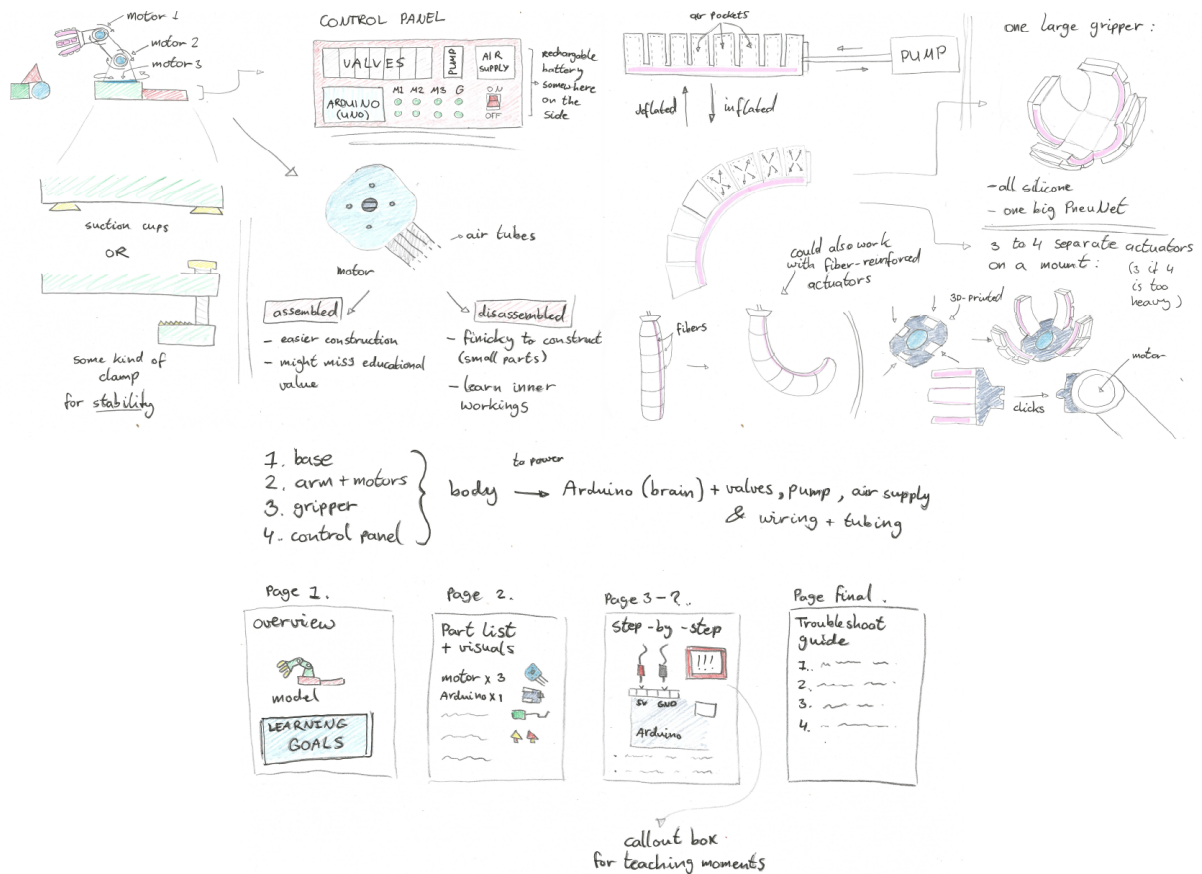 motor 1
motor 2
motor 3
suction cups
OR
some kind of
clamp
for stability
CONTROL PANEL
VALVES
PUMP
AIR
SUPPLY
ARDUINO
(UNO)
M1 M2 M3 G
ON
OFF
rechargable
battery
somewhere
on the
side
motor
air tubes
assembled
- easier construction
- might miss educational
value
disassembled
- finicky to construct
(small parts)
- learn inner
workings
air pockets
PUMP
deflated
inflated
could also work
with fiber-reinforced
actuators
fibers
one large gripper :
- all silicone
- one big PneuNet
3 to 4 separate actuators
on a mount :
(3 if 4
is too
heavy)
3D-printed
motor
clicks
1. base
2. arm + motors
3. gripper
4. control panel
body
to power
Arduino (brain) + valves, pump, air supply
& wiring + tubing
Page 1.
overview
model
LEARNING
GOALS
Page 2.
Part list
+ visuals
motor x 3
Arduino x 1
Page 3 - ?..
Step - by - step
!!!
5V GND
Arduino
callout box
for teaching moments
Page final.
Troubleshoot
guide
1.
2.
3.
4.